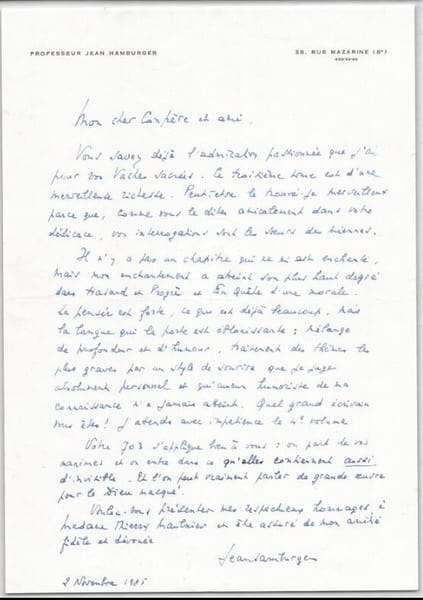 PROFESSEUR JEAN HAMBURGER 36, RUE MAZARINE (6e)
Mon cher Confrère et ami,
Vous savez déjà l'admiration passionnée que j'ai
pour vos Vaches Sacrées. Ce troisième tome est d'une
merveilleuse richesse. Peut-être le trouvé-je merveilleux
parce que, comme vous le dites amicalement dans votre
dédicace, vos interrogations sont les sœurs des miennes.
Il n'y a pas un chapitre qui ne m'ait enchanté,
mais mon enchantement a atteint son plus haut degré
dans Hasard et Progrès et En Quête d'une morale.
La pensée est forte, ce qui est déjà beaucoup, mais
la langue qui la porte est éblouissante : mélange
de profondeur et d'humour, traitement des thèmes les
plus graves par un style de sourire que je juge
absolument personnel et qu'aucun humoriste de ma
connaissance n'a jamais atteint. Quel grand écrivain
vous êtes ! J'attends avec impatience le 4e volume
Votre 703 s'applique bien à vous : on part de vos
maximes et on entre dans ce qu'elles contiennent aussi
d'invisible. Et l'on peut vraiment parler de grande œuvre
pour le Dieu masqué.
Voulez-vous présenter mes respectueux hommages à
madame Thierry Maulnier et être assuré de mon amitié
fidèle et dévouée
Jean Hamburger
2 Novembre 1985